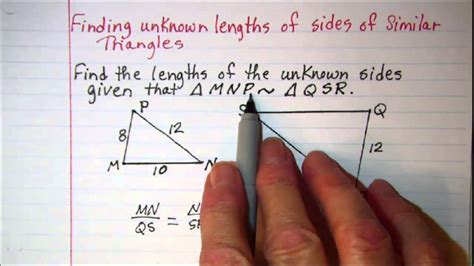 Finding unknown lengths of sides of Similar
Triangles
Find the lengths of the unknown sides
given that Δ MNP ~ Δ QSR.
P
Q
8
12
12
M
10
N
MN
QS
=
N